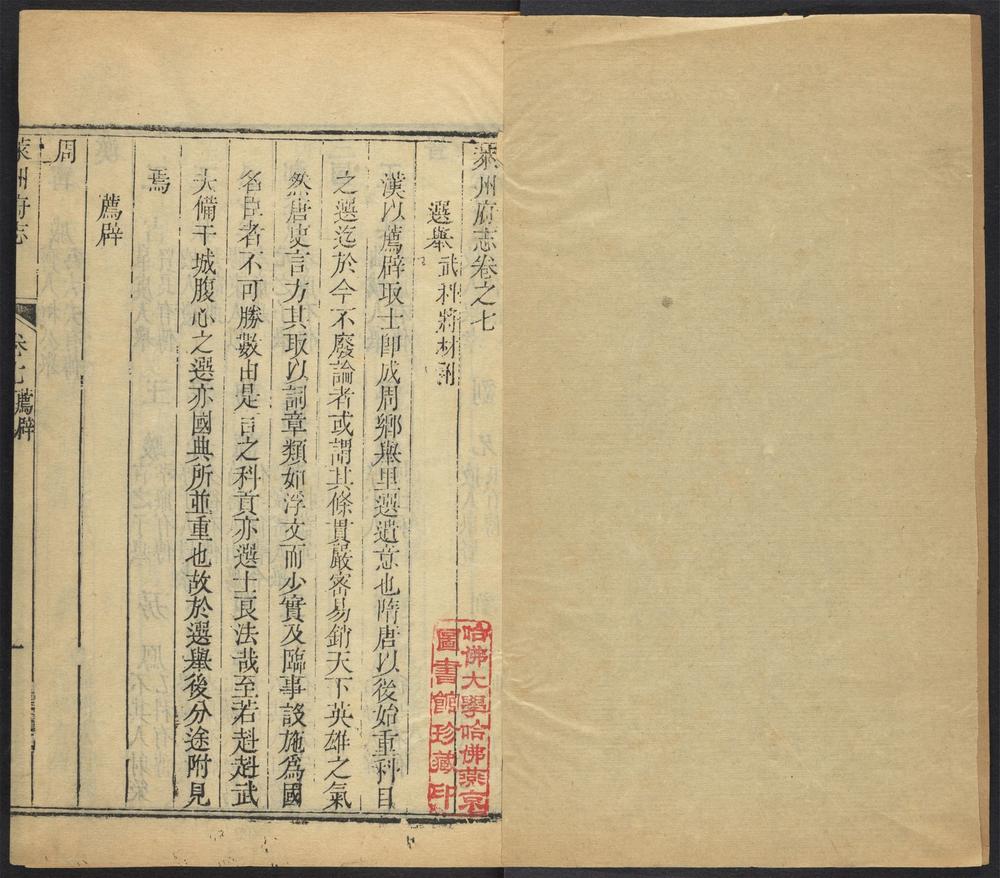 萊州府志卷之七
選舉 武科將材附
漢以薦辟取士卽成周鄉舉里選遺意也隋唐以後始重科目
之選迄於今不廢論者或謂其條貫嚴密易銷天下英雄之氣
然唐史言方其取以詞章類如浮文而少實及臨事設施爲國
名臣者不可勝數由是言之科貢亦選士良法哉至若赳赳武
夫備干城腹心之選亦國典所並重也故於選舉後分途附見
焉
薦辟
周
萊州府志
卷七 薦辟
一
哈佛大學哈佛燕京
圖書館珍藏印